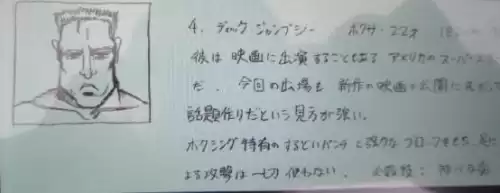 4. ディック ジャンプシー ボクサー・22才
彼は 映画に出演することもある アメリカのスーパー
だ. 今回の出場も 新作の映画の公開に
話題作りだという見方が強い.
ボクシング特有のするどいパンチと強力なブローを
よる攻撃は一切使わない.